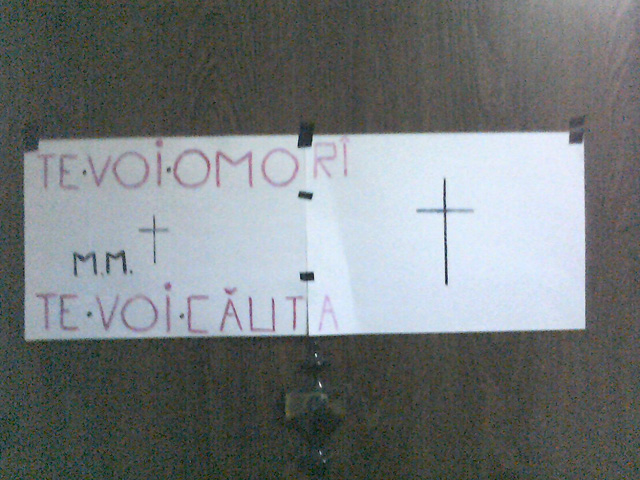 TE·VOI·OMORÎ
M.M.
TE·VOI·CĂUTA